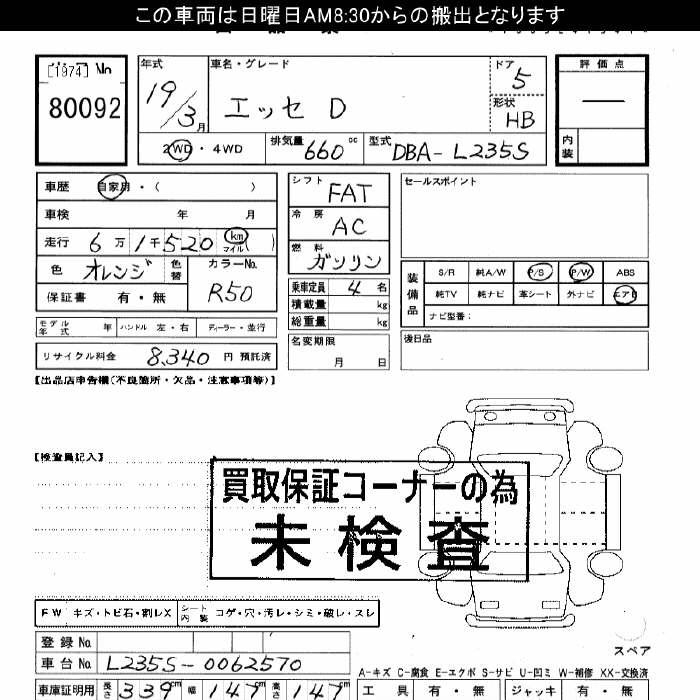 この車両は日曜日AM8:30からの搬出となります
[1974] No
80092
年式
19/3月
車名・グレード
エッセ D
ドア
5
形状
HB
評価点
—
内装
2WD・4WD
排気量 660 cc
型式 DBA-L235S
車歴 自家用・( )
車検 年 月
走行 6万1千520 km マイル( )
色 オレンジ 色替
カラーNo. R50
保証書 有・無
モデル年式 年 ハンドル 左・右 ディーラー・並行
リサイクル料金 8,340 円 預託済
シフト FAT
冷房 AC
燃料 ガソリン
乗車定員 4 名
積載量 kg
総重量 kg
名変期限
月 日
セールスポイント
装備品
S/R 純A/W P/S P/W ABS
純TV 純ナビ 革シート 外ナビ エアB
ナビ型番:
後日品
【出品店申告欄(不良箇所・欠品・注意事項等)】
【検査員記入】
買取保証コーナーの為
未検査
FW キズ・トビ石・割レX
シート内装 コゲ・穴・汚レ・シミ・破レ・スレ
スペア
登録No.
車台No. L235S-0062570
車庫証明用 長さ 339cm 幅 147cm 高さ 147cm
A-キズ C-腐食 E-エクボ S-サビ U-凹ミ W-補修 XX-交換済
工具 有・無 ジャッキ 有・無